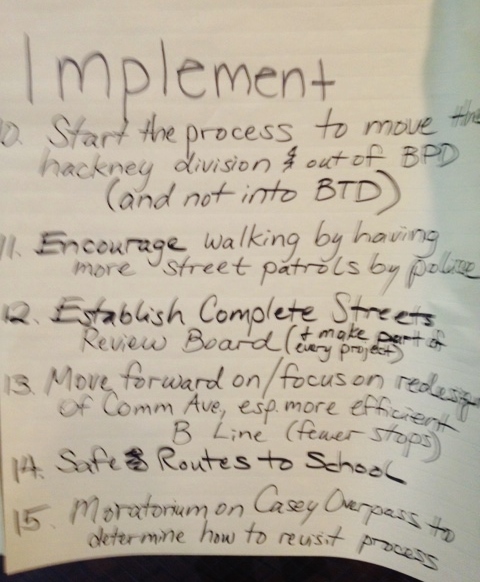 Implement
10. Start the process to move the
hackney division & out of BPD
(and not into BTD)
11. Encourage walking by having
more street patrols by police
12. Establish Complete Streets
Review Board (+ make part of
every project)
13. Move forward on/focus on redesign
of Comm Ave, esp. more efficient
B Line (fewer stops)
14. Safe Routes to School
15. Moratorium on Casey Overpass to
determine how to revisit process